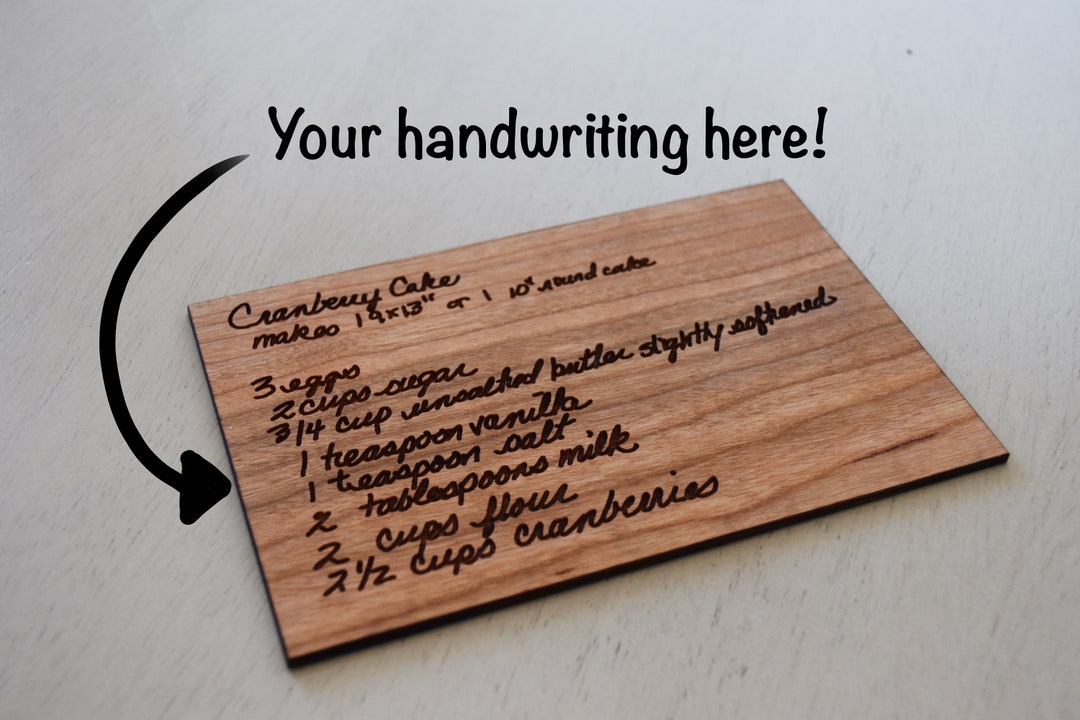 Your handwriting here!
Cranberry Cake
makes 1 9x13" or 1 10" round cake
3 eggs
2 cups sugar
3/4 cup unsalted butter slightly softened
1 teaspoon vanilla
1 teaspoon salt
2 tablespoons milk
2 cups flour
2 1/2 cups cranberries